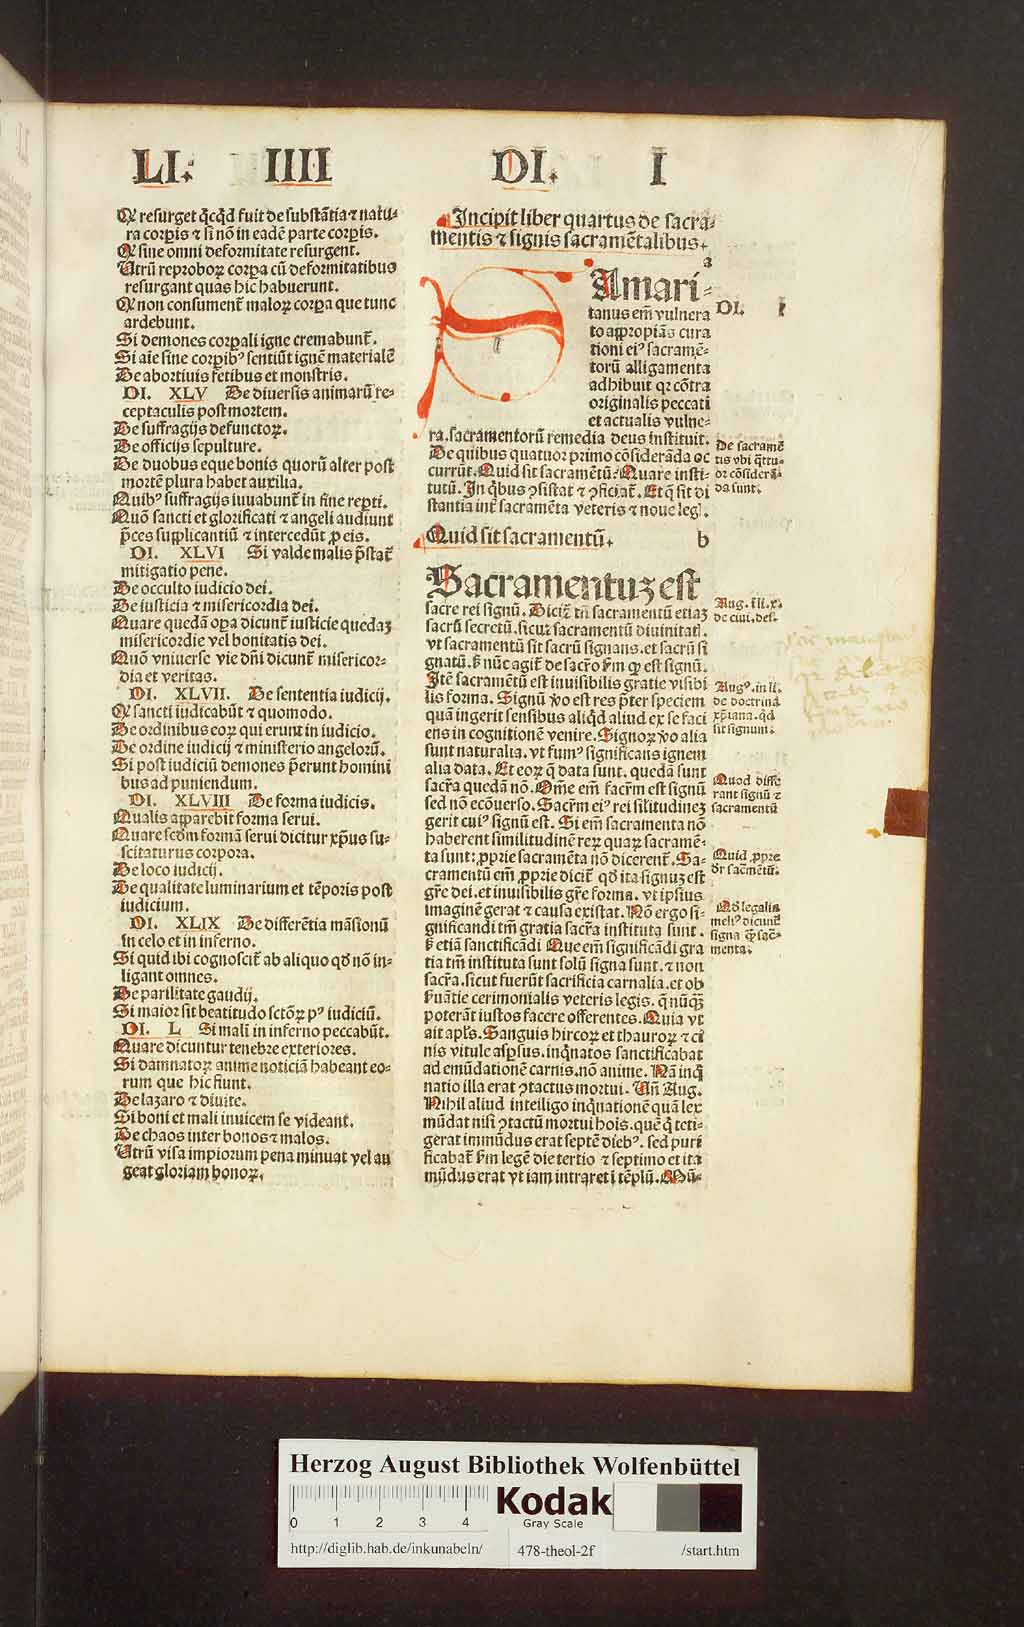 LI. IIII DI. I
Qꝛ resurget q̄cq̄d fuit de substātia ⁊ natu⸗
ra corpis ⁊ si nō in eadē parte corpis.
Qꝛ sine omni deformitate resurgent.
Utrū reproboꝝ corpa cū deformitatibus
resurgant quas hic habuerunt.
Qꝛ non consument̄ maloꝝ corpa que tunc
ardebunt.
Si demones corpali igne cremabunt̄.
Si aīe sine corpibꝰ sentiūt ignē materialē
De abortiuis fetibus et monstris.
DI. XLV De diuersis animarū re⸗
ceptaculis post mortem.
De suffragijs defunctoꝝ.
De officijs sepulture.
De duobus eque bonis quorū alter post
mortē plura habet auxilia.
Quibꝰ suffragijs iuuabunt̄ in fine repti.
Quō sancti et glorificati ⁊ angeli audiunt
p̄ces supplicantiū ⁊ intercedūt ꝓ eis.
DI. XLVI Si valde malis p̄stat̄
mitigatio pene.
De occulto iudicio dei.
De iusticia ⁊ misericordia dei.
Quare quedā opa dicunt̄ iusticie quedaꝫ
misericordie vel bonitatis dei.
Quō vniuerse vie dn̄i dicunt̄ misericor⸗
dia et veritas.
DI. XLVII. De sententia iudicij.
Qꝛ sancti iudicabūt ⁊ quomodo.
De ordinibus eoꝝ qui erunt in iudicio.
De ordine iudicij ⁊ ministerio angelorū.
Si post iudiciū demones p̄erunt homini
bus ad puniendum.
DI. XLVIII De forma iudicis.
Qualis apparebit forma serui.
Quare scdm̄ formā serui dicitur xp̄us su⸗
scitaturus corpora.
De loco iudicij.
De qualitate luminarium et tēporis post
iudicium.
DI. XLIX De differētia māsionū
in celo et in inferno.
Si quid ibi cognoscit̄ ab aliquo qd̄ nō in⸗
ligant omnes.
De parilitate gaudij.
Si maior sit beatitudo sctōꝝ pꝰ iudiciū.
DI. L Si mali in inferno peccabūt.
Quare dicuntur tenebre exteriores.
Si damnatoꝝ anime noticiā habeant eo⸗
rum que hic fiunt.
De lazaro ⁊ diuite.
Si boni et mali inuicem se videant.
De chaos inter bonos ⁊ malos.
Utrū visa impiorum pena minuat vel au
geat gloriam bonoꝝ.
Incipit liber quartus de sacra⸗
mentis ⁊ signis sacramētalibus.
a
SAmari⸗
tanus em̄ vulnera
to appropiās cura
tioni eiꝰ sacramē⸗
torū alligamenta
adhibuit qꝛ cōtra
originalis peccati
et actualis vulne⸗
ra. sacramentorū remedia deus instituit.
De quibus quatuor primo cōsiderāda oc
currūt. Quid sit sacramētū. Quare insti⸗
tutū. In q̄bus ꝯsistat ⁊ ꝯficiat̄. Et q̄ sit di
stantia int̄ sacramēta veteris ⁊ noue legꝭ.
Quid sit sacramentū. b
Sacramentuꝫ est
sacre rei signū. Dicit̄ tn̄ sacramentū etiaꝫ
sacrū secretū. sicut sacramentū diuinitatꝭ.
vt sacramentū sit sacrū signans. et sacrū si
gnatū. sꝫ nūc agit̄ de sacr̄o ẜm qꝛ est signū.
Itē sacramētū est inuisibilis gratie visibi
lis forma. Signū ꝟo est res p̄ter speciem
quā ingerit sensibus aliq̄d aliud ex se faci
ens in cognitionē venire. Signoꝝ ꝟo alia
sunt naturalia. vt fumꝰ significans ignem
alia data. Et eoꝝ q̄ data sunt. quedā sunt
sacr̄a quedā nō. Om̄e em̄ sacr̄m est signū
sed nō ecōuerso. Sacr̄m eiꝰ rei silitudineꝫ
gerit cuiꝰ signū est. Si em̄ sacramenta nō
haberent similitudinē reꝝ quaꝝ sacramē⸗
ta sunt: ꝓprie sacramēta nō dicerent̄. Sa⸗
cramentū em̄ ꝓprie dicit̄ qd̄ ita signuꝫ est
gr̄e dei. et inuisibilis gr̄e forma. vt ipsius
imaginē gerat ⁊ causa existat. Nō ergo si⸗
gnificandi tm̄ gratia sacr̄a instituta sunt.
sꝫ etiā sanctificādi Que em̄ significādi gra
tia tm̄ instituta sunt solū signa sunt. ⁊ non
sacr̄a. sicut fuerūt sacrificia carnalia. et ob
ẜuātie cerimonialis veteris legis. q̄ nūq̄ꝫ
poterāt iustos facere offerentes. Quia vt
ait apl̄s. Sanguis hircoꝝ et thauroꝝ ⁊ ci
nis vitule aspsus. inq̄natos sanctificabat
ad emūdationē carnis. nō anime. Nā inq̄
natio illa erat ꝯtactus mortui. Un̄ Aug.
Nihil aliud intelligo inq̄nationē quā lex
mūdat nisi ꝯtactū mortui hoīs. quē q̄ teti⸗
gerat immūdus erat septē diebꝰ. sed puri
ficabat̄ ẜm legē die tertio ⁊ septimo et ita
mūdus erat vt iam intraret ī tēplū. Mū⸗
DI. I
De sacramē
tis vbi q̄ttu⸗
or cōsiderā⸗
da sunt.
Aug. ī li. x.
de ciui. dei.
Augꝰ. in li.
de doctrina
xp̄iana. qd̄
sit signum.
Quod diffe
rant signū ⁊
sacramentū
Quid ꝓpre
dr̄ sacm̄entū.
Qd̄ legalia
meliꝰ dicunt̄
signa q̄ꝫ sac⸗
menta.
Herzog August Bibliothek Wolfenbüttel
0 1 2 3 4
Kodak
Gray Scale
http://diglib.hab.de/inkunabeln/ 478-theol-2f /start.htm